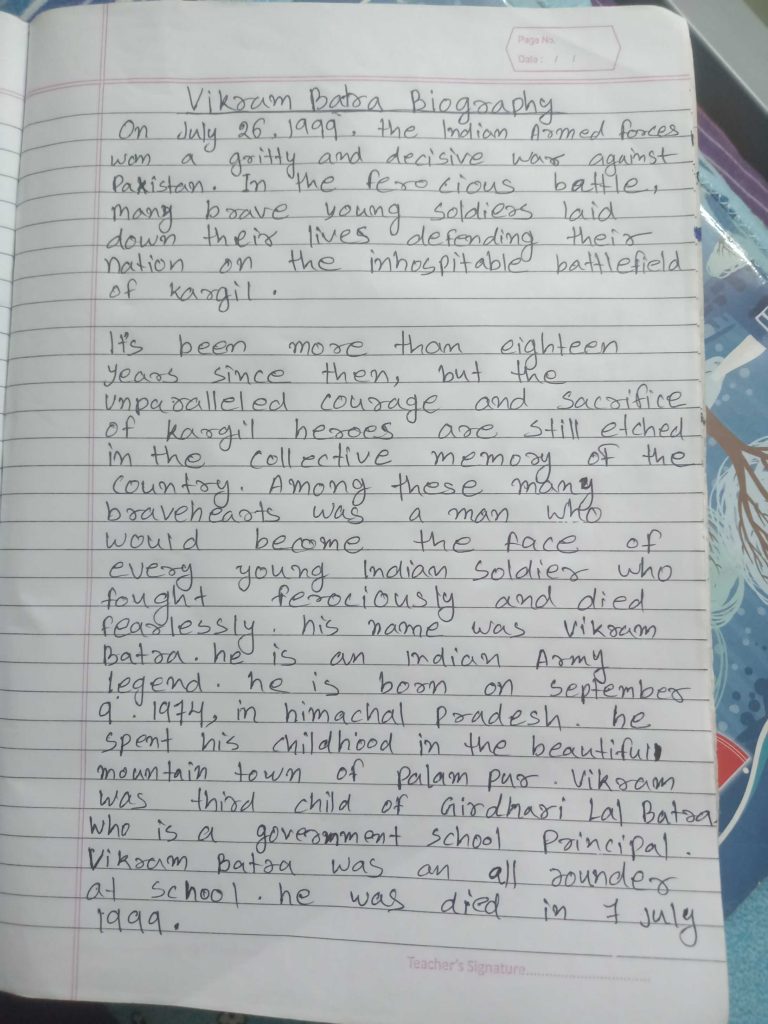 Page No.
Date: / /
Vikram Batra Biography
On July 26, 1999. the Indian Armed forces
won a gritty and decisive war against
Pakistan. In the ferocious battle,
many brave young soldiers laid
down their lives defending their
nation on the inhospitable battlefield
of kargil.
It's been more than eighteen
years since then, but the
unparalleled courage and sacrifice
of kargil heroes are still etched
in the collective memory of the
country. Among these many
bravehearts was a man who
would become the face of
every young Indian soldier who
fought ferociously and died
fearlessly. his name was Vikram
Batra. he is an Indian Army
legend. he is born on september
9. 1974, in himachal Pradesh. he
spent his childhood in the beautiful
mountain town of Palam pur. Vikram
was third child of Girdhari Lal Batra
who is a government school Principal.
Vikram Batra was an all rounder
at school. he was died in 7 July
1999.
Teacher's Signature